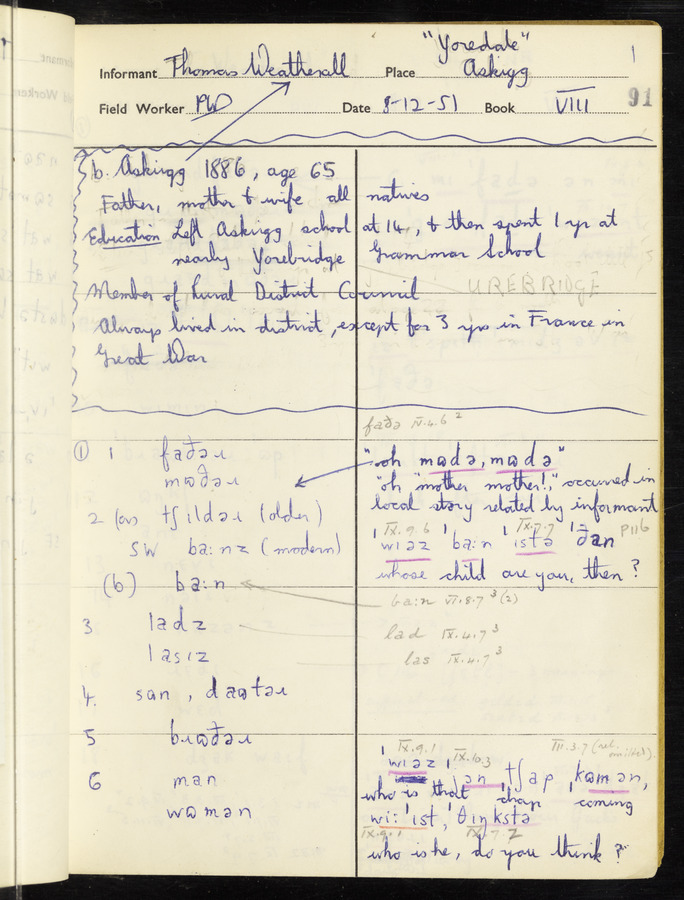 "Yoredale" 1
Informant Thomas Weatherall Place Askrigg
Field Worker PW Date 8-12-51 Book VIII 91
b. Askrigg 1886, age 65
Father, mother & wife all natives
Education Left Askrigg school at 14, & then spent 1 yr at
nearly Yorebridge Grammar School
Member of Rural District Council UREBRIDGE
Always lived in district, except for 3 yrs in France in
Great War
faðə IV.4.6²
① 1 faðəɹ
mɷðəɹ
"oh mɷdə, mɷdə"
"oh mother mother!", occurred in
local story related by informant
2 (a) tʃɪldəɹ (older)
SW ba:nz (modern)
IX.9.6 IX.7.7 P116
ˈwɪəz ˈba:n ˈɪstə ˈðan
whose child are you, then?
(b) ba:n
ba:n VI.8.7³ (2)
3 ladz
lad IX.4.7³
lasɪz
las IX.4.7³
4. sɷn, dɑɷtəɹ
5 bɹɷðəɹ
6 man
wɷmən
IX.9.1 IX.10.3 III.3.7 (rel. omitted).
ˈwɪəz ˈðan tʃap kɷmən,
who is that chap coming
wi: ˈɪst, ˈθɪŋkstə
IX.9.1 IX.7.7
who is he, do you think?